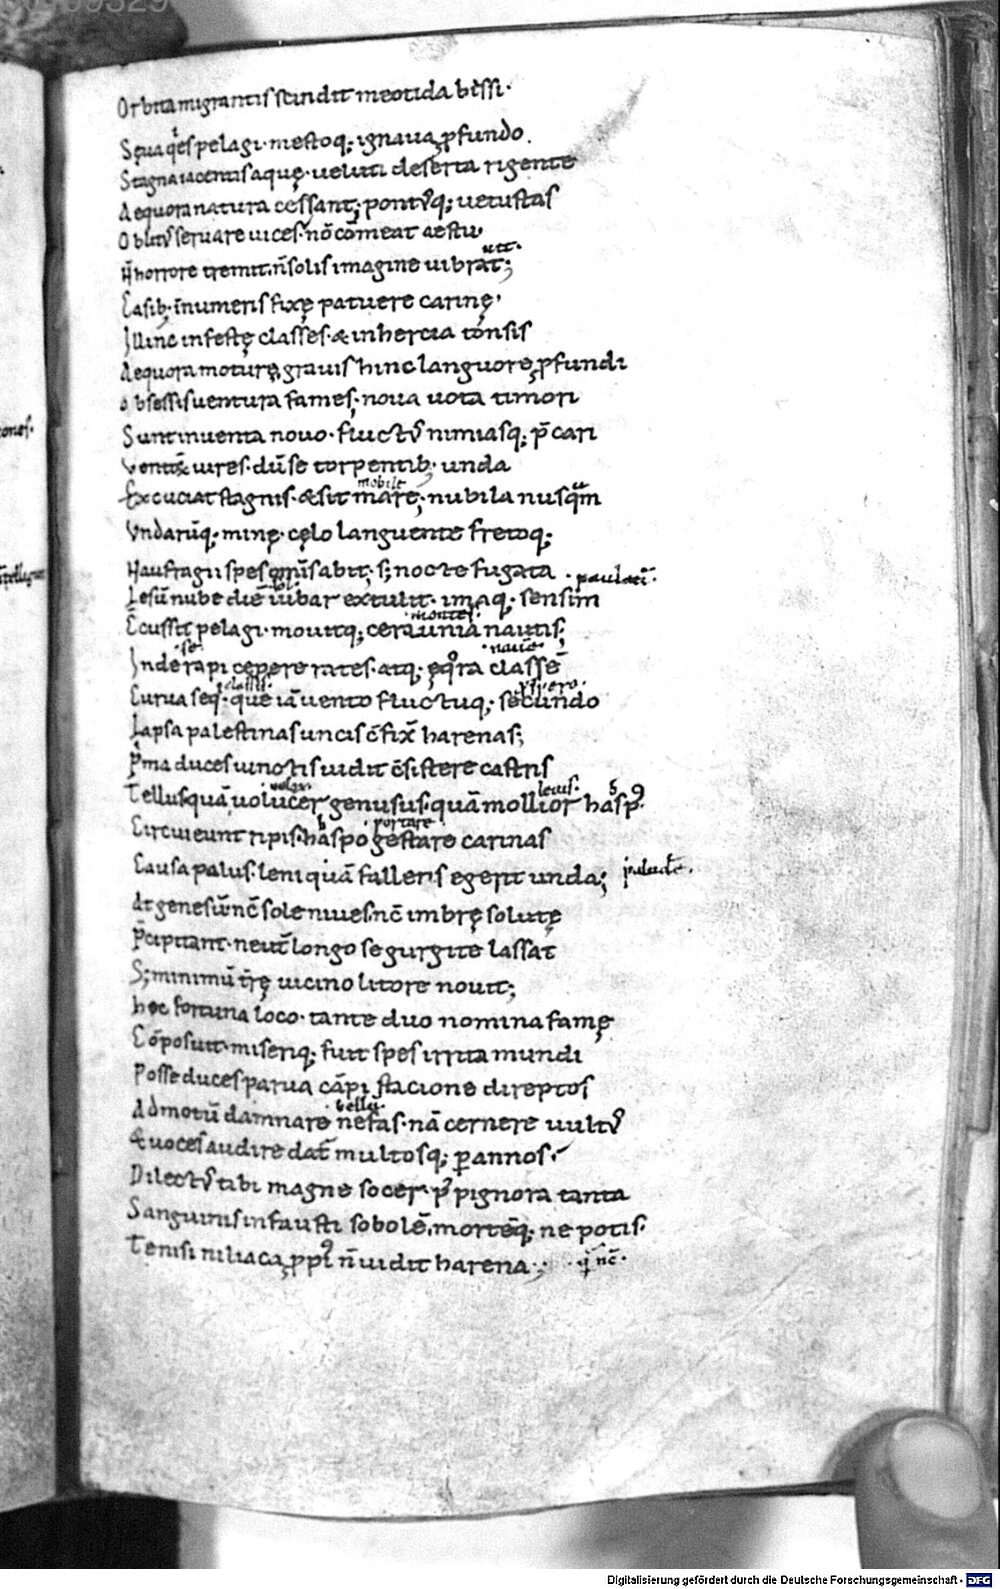 Orbita migrantis scindit meotida bessi·
Sęua q̾es pelagi· mestoq; ignaua ꝓfundo.
Stagna iacentis aquę· ueluti deserta rigente
Aequora natura cessant; pontꝰq; uetustas
Oblitꝰ seruare uices· nō cōmeat aestu·
Ñ horrore tremit· ñ solis imagine uibrat;
Casib; īnumeris fixę patuere carinę·
Illinc infestę classes· & inhertia tonsis
Aequora moturę, grauis hinc languore ꝓfundi
Obsessis uentura fames· noua uota timori
Sunt inuenta nouo· fluctꝰ nimiasq; p̄cari
Ventoꝝ uires· dū se torpentib; unda
mobile
Excuciat stagnis· & sit mare; nubila nusq̄m
Vndarūq; minę· cęlo languente fretoq;
Naufragii spes omīs abit· s; nocte fugata · paulatī·
Lesū nube diē iubar extulit· imaq; sensim
·montes·
Ccussit pelagi· mouitq; ceraunia nautis;
·se· ·nauē·
Inde rapi cępere rates· atq; ęq̊ra classē
classis· ·ꝓspero·
Curua seq̄· que iā uento fluctuq; secundo
Lapsa palestinas uncis c̄fix̄ harenas;
P̄ma duces uinctis uidit c̄sistere castris
uelox leuis·
Tellus quā uolucer genusus· quā mollior hasp̄ꝰ·
·portare·
Circuieunt ripis· haspo gestare carinas
Causa palus· leni quā fallens egerit unda; palude·
At genesū nc̄ sole niues· nc̄ imbrę solutę
P̄cipitant· neut̄ longo se gurgite lassat
S; minimū t̄rę uicino litore nouit;
Hoc fortuna loco· tante duo nomina famę
Cōposuit· miseriq; fuit spes irrita mundi
Posse duces parua cāpi stacione direptos
·belli·
Admotū damnare nefas· nā cernere uultꝰ
& uoces audire dat̄ multosq; ꝑ annos·
Dilectꝰ tibi magne socer· p̄ pignora tanta
Sanguinis infausti sobolē, mortēq; nepotis·
Te nisi niliaca ꝓpꝰ ñ uidit harena·;